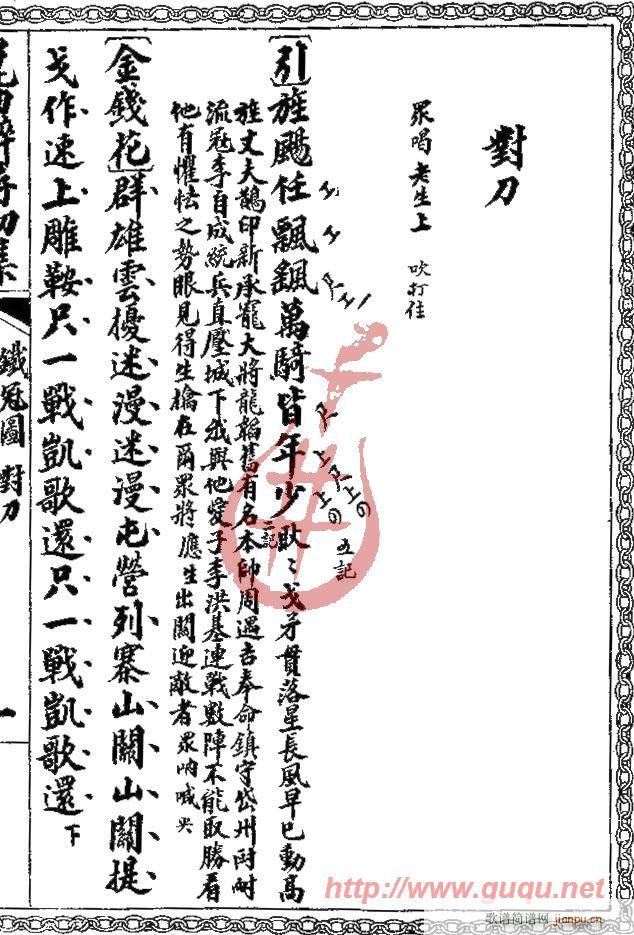 對刀
眾喝老生上 吹打住
[引]旌颺任飄颻萬騎皆年少
戈矛貫落星長風早已動高
旌丈大鵲印新承寵大將龍韜舊有名本帥周遇吉奉命鎮守岱州耐耐
流寇李自成統兵直壓城下我與他愛子李洪基連戰數陣不能取勝看
他有懼怯之勢眼見得生擒在爾眾將應生出關迎敵者眾吶喊
[金錢花]群雄雲擾迷漫迷漫屯營列寨山關山關提
戈作速上雕鞍只一戰凱歌還只一戰凱歌還下
二記
五記
鐵冠圖 對刀
一
http://www.guqu.net
歌谱简谱网 jianpu.cn